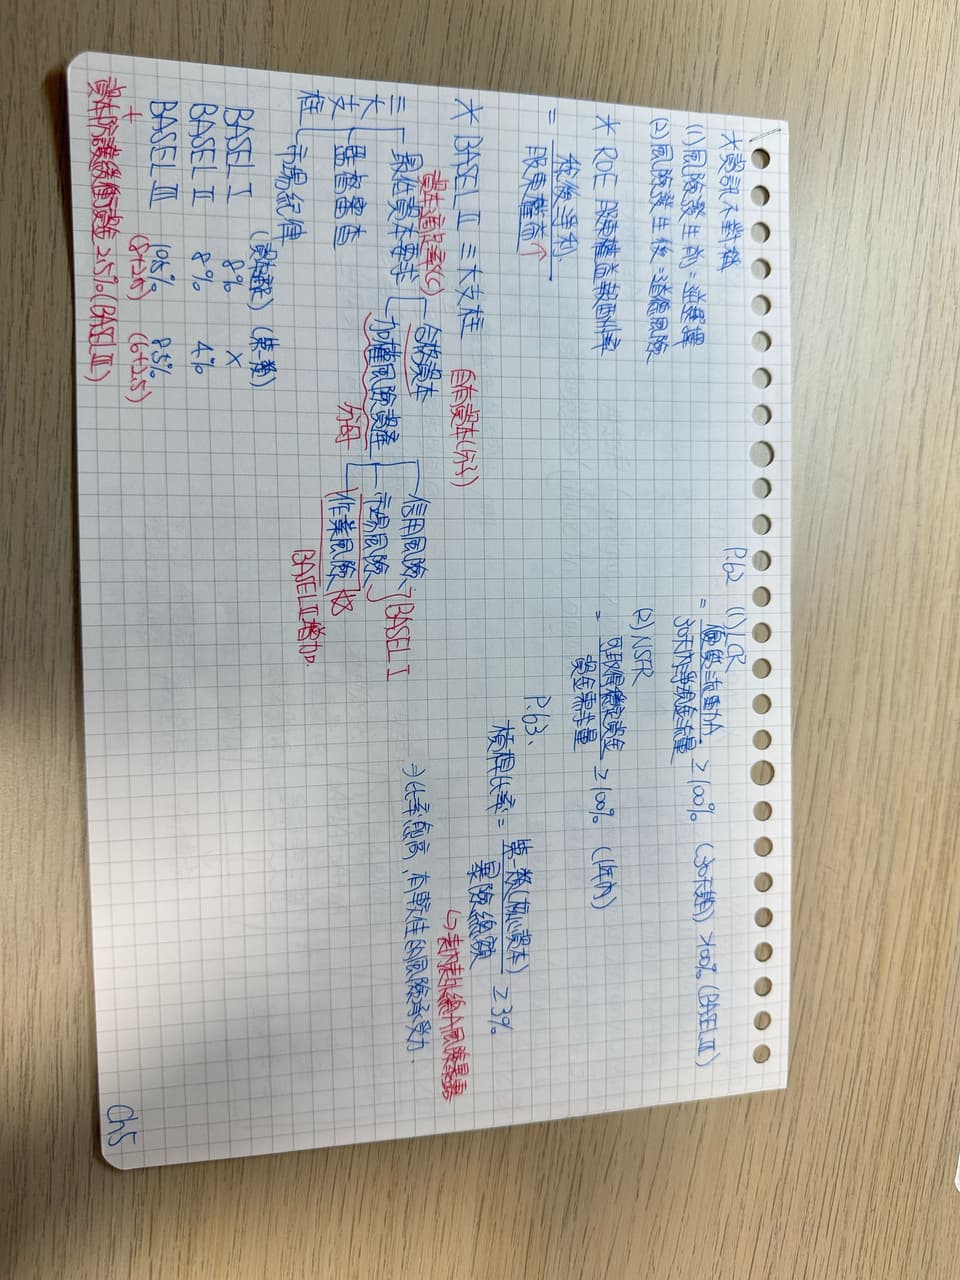 * 資訊不對稱
(1) 風險發生前 = 逆選擇
(2) 風險發生後 = 道德風險
* ROE 股東權益報酬率
= 稅後淨利
股東權益↑
* BASEL II 三大支柱
三大支柱
資本適足率(
最低資本要求
監督審查
市場紀律
自有資本(分子)
合格資本
加權風險資產
分母
信用風險
市場風險
BASEL I
作業風險 ☆
BASEL II 增加.
(第一類)
BASEL I 8% X
BASEL II 8% 4%
BASEL III 10.5% 8.5%
(8+2.5) (6+2.5)
+
資本防護緩衝 2.5% (BASEL III)
P.62 (1) LCR
= 優質流動A
30天內淨現金流量
≥100% (30天期) >100% (BASEL III)
(2) NSFR
= 可取得穩定資金
資金需求量
≥100% (1年內)
P.63.
槓桿比率 = 第一類(核心資本)
暴險總額
≥3%
⇒比率愈高,有較佳的風險承受力.
Ch5